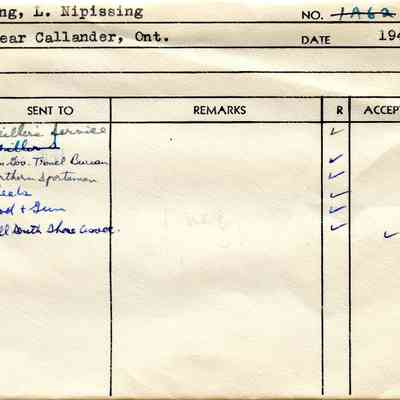 ng, L. Nipissing NO. 1962
ear Callander, Ont. DATE 194
SENT TO REMARKS R ACCEPT
iller's Service ✓
n Gov. Travel Bureau ✓
rthern Sportsman ✓
eeds ✓
od + Gun ✓
ll South Shore Assoc. ✓ ✓